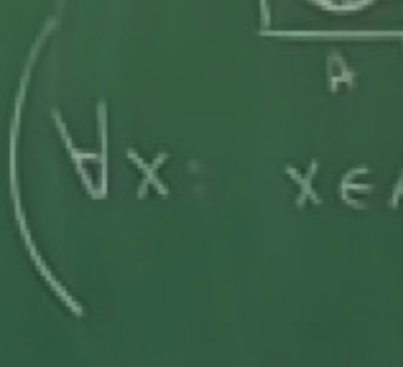 A
(∀x: x ∈